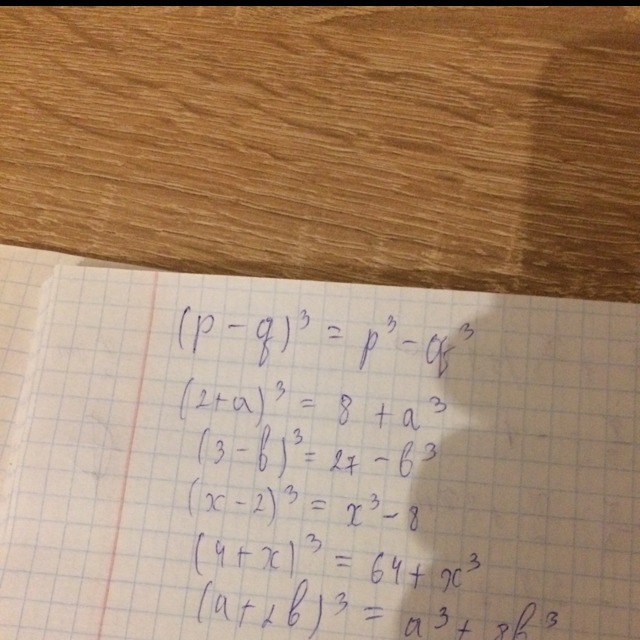 (p - q)³ = p³ - q³
(2+a)³ = 8 + a³
(3 - b)³ = 27 - b³
(x - 2)³ = x³ - 8
(4 + x)³ = 64 + x³
(a + 2b)³ = a³ + 8b³